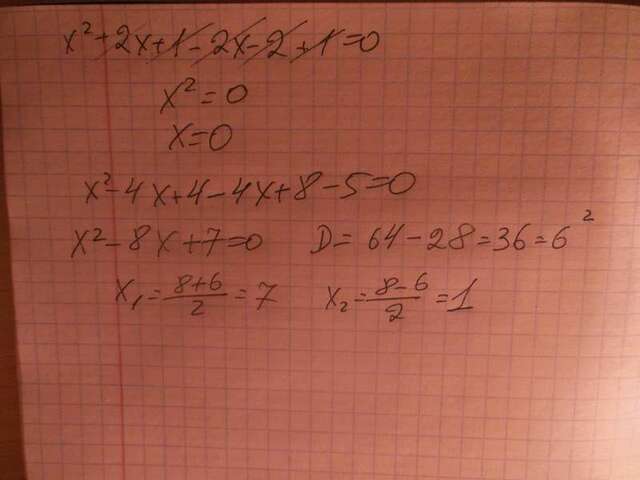 x²+2x+1-2x-2+1=0
x²=0
x=0
x²-4x+4-4x+8-5=0
x²-8x+7=0 D=64-28=36=6²
x₁=8+6/2=7 x₂=8-6/2=1